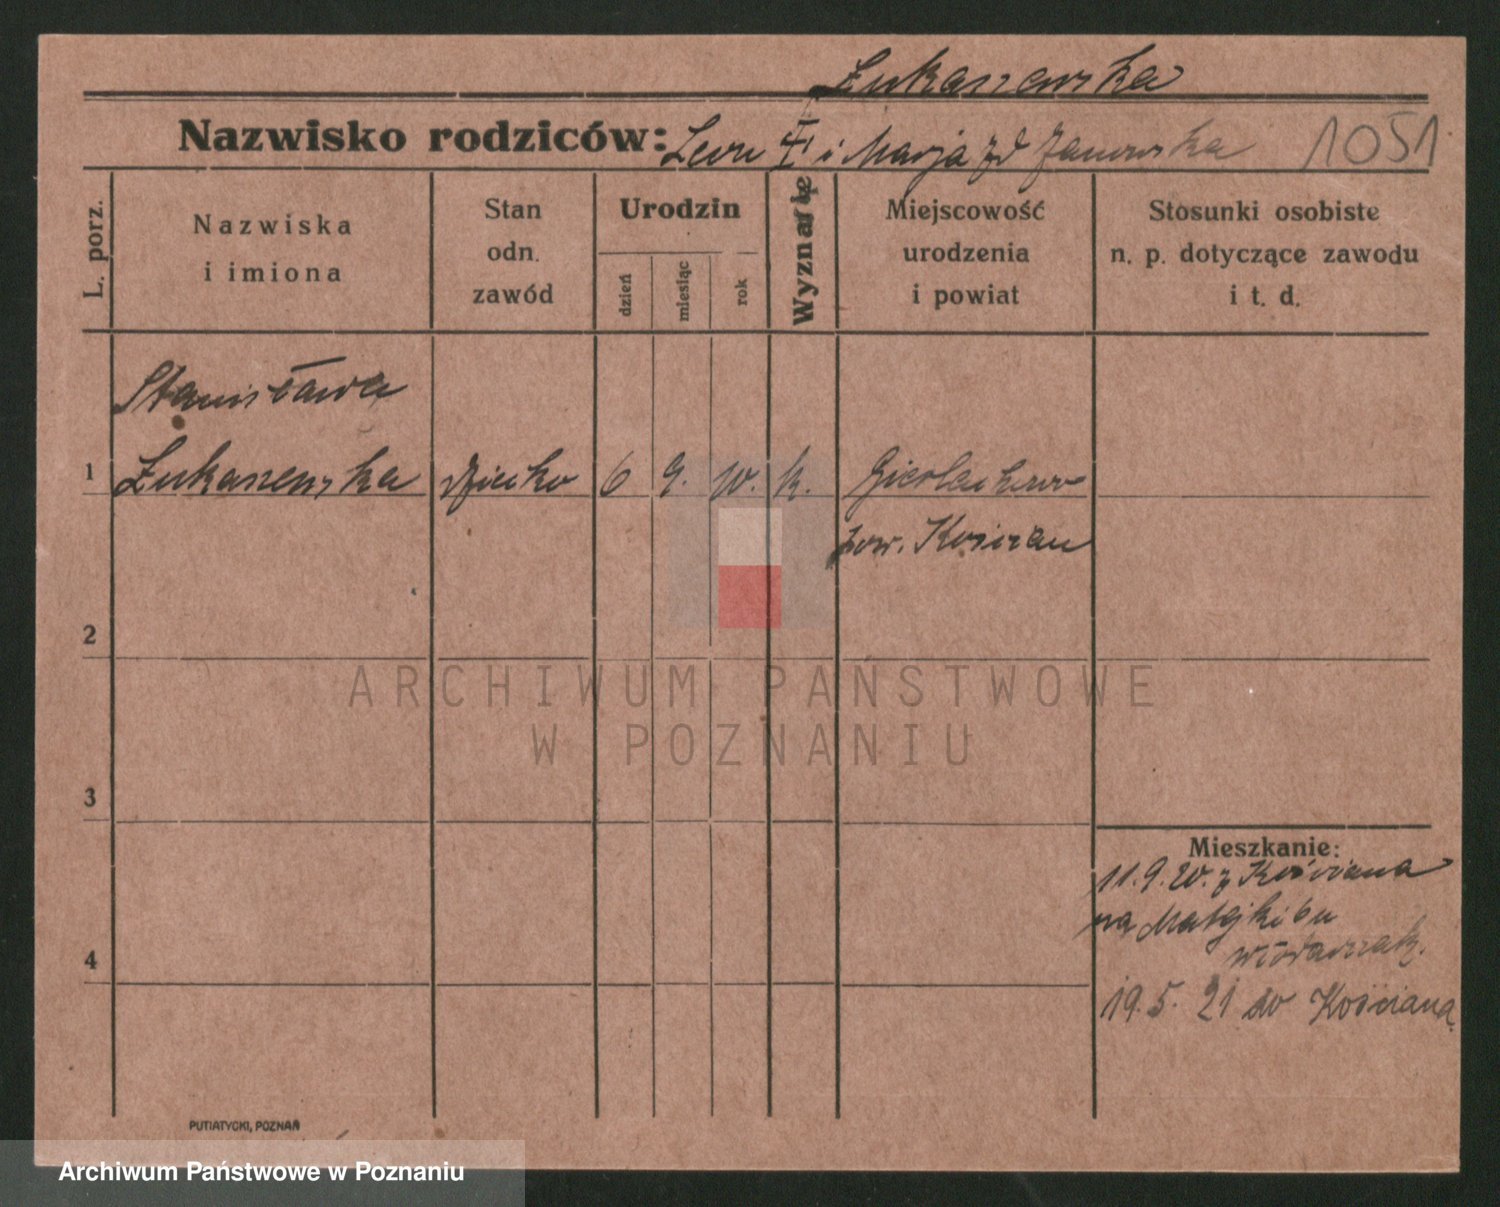 Łukaszewska
Nazwisko rodziców: Leon i Marja zd Janowska 1051
L. porz.
Nazwiska
i imiona
Stan
odn.
zawód
Urodzin
dzień
miesiąc
rok
Miejscowość
urodzenia
i powiat
Stosunki osobiste
n. p. dotyczące zawodu
i t. d.
Stanisława
1 Łukaszewska dziecko 6 9. 10. k.
pow. Kościan
2
3
4
Mieszkanie:
11.9.20. z Kościana
na Matejki 6 u
19.5.21 do Kościana
PUTIATYCKI, POZNAŃ
ARCHIWUM PAŃSTWOWE
W POZNANIU
Archiwum Państwowe w Poznaniu